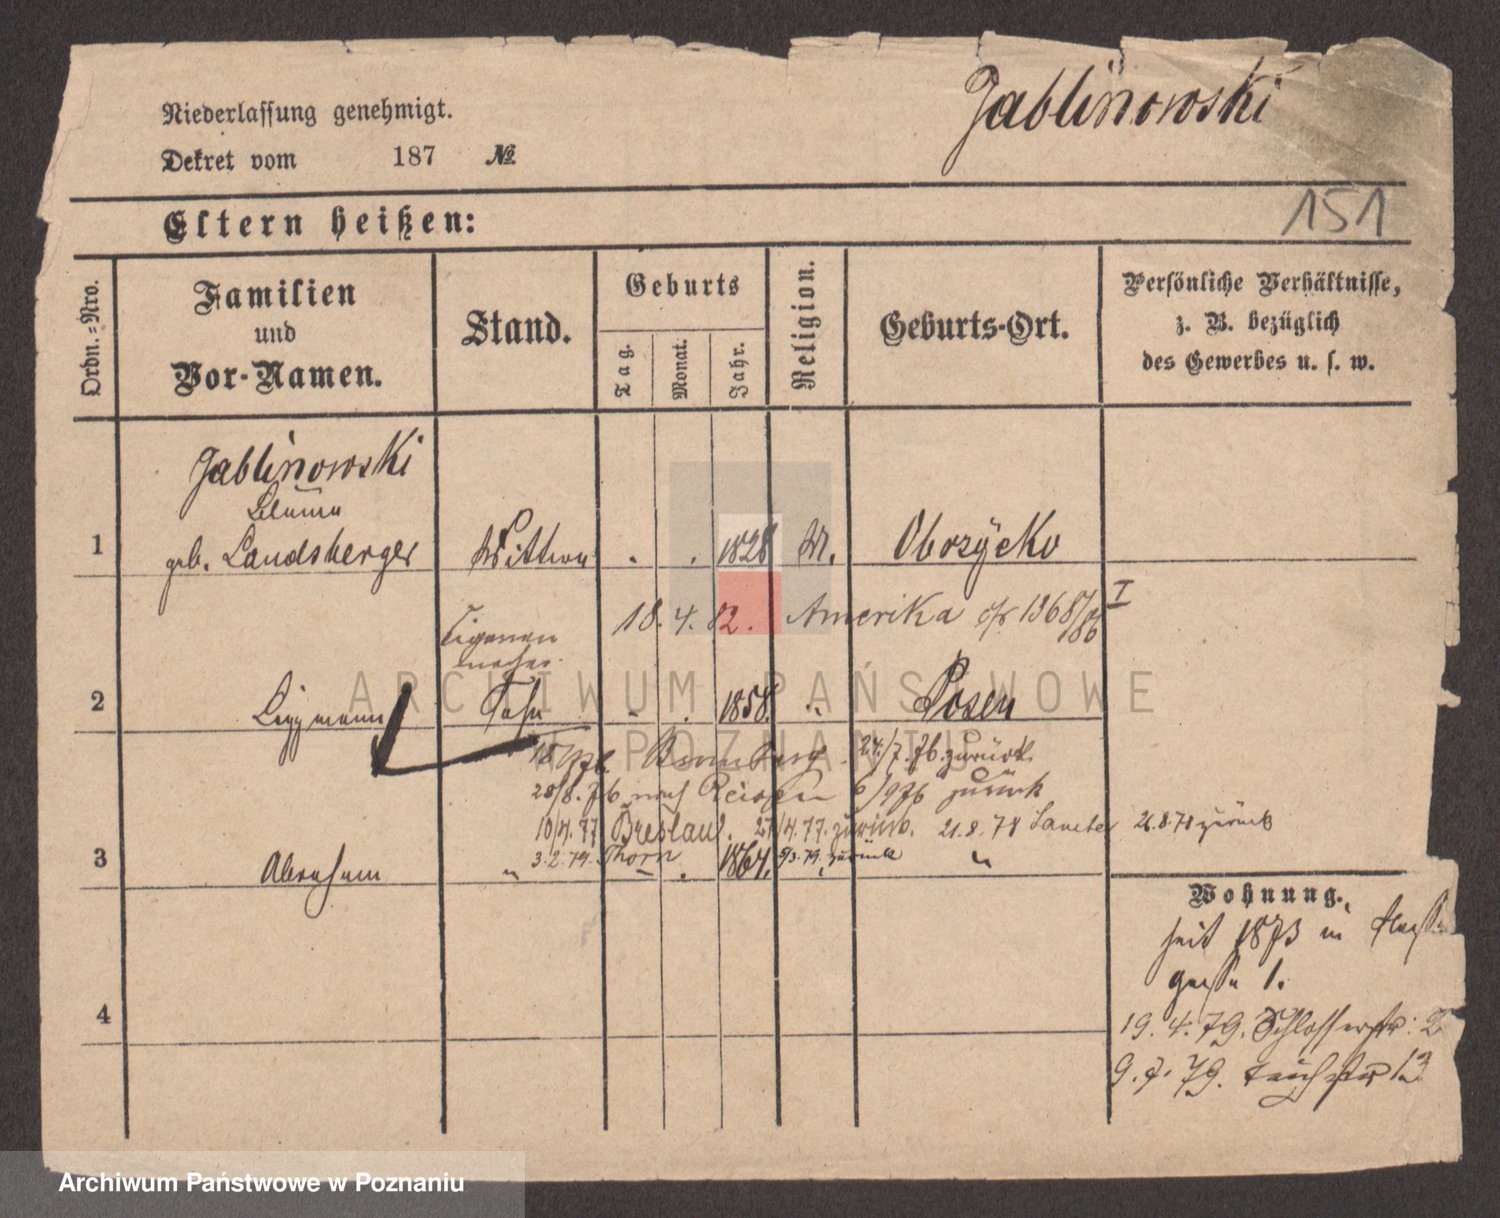 Jablinowski
Niederlassung genehmigt.
Dekret vom 187 №
151
Eltern heißen:
Ordn.=Nro.
Familien
und
Vor-Namen.
Stand.
Geburts
Tag.
Monat.
Jahr.
Religion.
Geburts-Ort.
Persönliche Verhältnisse,
z. B. bezüglich
des Gewerbes u. s. w.
Jablinowski
Bluma
1 geb. Landsberger Wittwe . . 1828 M. Obrzycko
18. 4. 82. Amerika 1368/86 I
Cigarren
macher
2 Lippmann Sohn - . 1858. " Posen
Bromberg 24/7. 76. zurück
28/8. 76 nach 6/9 76 zurück
10/4. 77 Breslau. 27/4. 77. zurück. 21. 8. 78 26. 8. 78 zurück
3. 2. 79. Thorn 5/3. 79. zurück
3 Abraham " - . 1864. "
Wohnung.
seit 1873 in
gasse 1.
4
19. 4. 79. Schlosserstr: 2
9. 7. 79. 13
ARCHIWUM PAŃSTWOWE
W POZNANIU
Archiwum Państwowe w Poznaniu